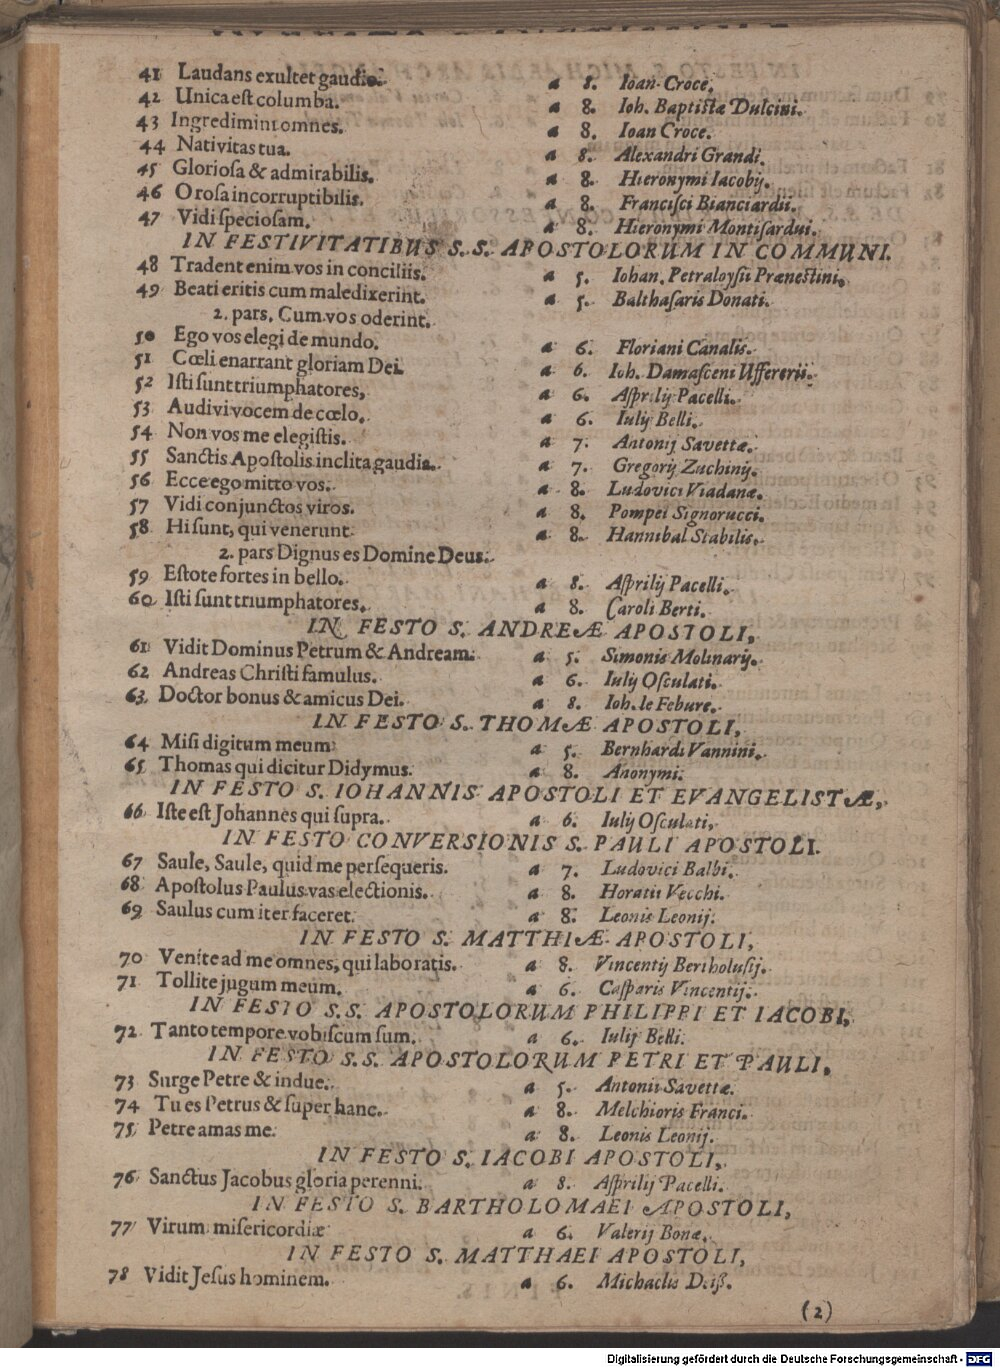 41 Laudans exultet gaudio. a 8. Ioan Croce.
42 Unica est columba. a 8. Ioh. Baptistæ Dulcini.
43 Ingredimini omnes. a 8. Ioan Croce.
44 Nativitas tua. a 8. Alexandri Grandi.
45 Gloriosa & admirabilis. a 8. Hieronymi Iacobij.
46 O rosa incorruptibilis. a 8. Francisci Bianciardii.
47 Vidi speciosam. a 8. Hieronymi Montisardui.
IN FESTIVITATIBUS S.S. APOSTOLORUM IN COMMUNI.
48 Tradent enim vos in conciliis. a 5. Iohan. Petraloysii Prænestini.
49 Beati eritis cum maledixerint. a 5. Balthasaris Donati.
2. pars. Cum vos oderint.
50 Ego vos elegi de mundo. a 6. Floriani Canalis.
51 Cœli enarrant gloriam Dei. a 6. Ioh. Damasceni Uffererii.
52 Isti sunt triumphatores, a 6. Asprilij Pacelli.
53 Audivi vocem de cœlo. a 6. Iulij Belli.
54 Non vos me elegistis. a 7. Antonij Savettæ.
55 Sanctis Apostolis inclita gaudia. a 7. Gregorij Zuchinij.
56 Ecce ego mitto vos. a 8. Ludovici Viadanæ.
57 Vidi conjunctos viros. a 8. Pompei Signorucci.
58 Hi sunt, qui venerunt a 8. Hannibal Stabilis.
2. pars Dignus es Domine Deus.
59 Estote fortes in bello. a 8. Asprilij Pacelli.
60 Isti sunt triumphatores. a 8. Caroli Berti.
IN FESTO S. ANDREÆ APOSTOLI,
61 Vidit Dominus Petrum & Andream. a 5. Simonis Molinarij.
62 Andreas Christi famulus. a 6. Iulij Osculati.
63 Doctor bonus & amicus Dei. a 8. Ioh. le Febure.
IN FESTO S. THOMÆ APOSTOLI,
64 Misi digitum meum a 5. Bernhardi Vannini.
65 Thomas qui dicitur Didymus. a 8. Anonymi.
IN FESTO S. IOHANNIS APOSTOLI ET EVANGELISTÆ,
66 Iste est Johannes qui supra. a 6. Iulij Osculati,
IN FESTO CONVERSIONIS S. PAULI APOSTOLI.
67 Saule, Saule, quid me persequeris. a 7. Ludovici Balbi.
68 Apostolus Paulus vas electionis. a 8. Horatii Vecchi.
69 Saulus cum iter faceret. a 8. Leonis Leonij.
IN FESTO S. MATTHIÆ APOSTOLI,
70 Venite ad me omnes, qui laboratis. a 8. Vincentij Bertholusij.
71 Tollite jugum meum. a 6. Casparis Vincentij.
IN FESTO S.S. APOSTOLORUM PHILIPPI ET IACOBI,
72 Tanto tempore vobiscum sum. a 6. Iulij Belli.
IN FESTO S.S. APOSTOLORUM PETRI ET PAULI,
73 Surge Petre & indue. a 5. Antonii Savettæ.
74 Tu es Petrus & super hanc. a 8. Melchioris Franci.
75 Petre amas me. a 8. Leonis Leonij.
IN FESTO S. IACOBI APOSTOLI,
76 Sanctus Jacobus gloria perenni. a 8. Asprilij Pacelli.
IN FESTO S. BARTHOLOMAEI APOSTOLI,
77 Virum misericordiæ a 6. Valerij Bonæ.
IN FESTO S. MATTHAEI APOSTOLI,
78 Vidit Jesus hominem. a 6. Michaelis Deiß.
(2)
Digitalisierung gefördert durch die Deutsche Forschungsgemeinschaft - DFG